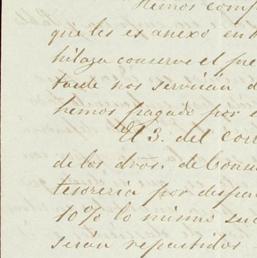 Hemos comp
que les es anexo en
hilaza conserve el pre
tarde nos servirán d
hemos pagado por e
El 3. del corr
de los dros. de Consu
tesorería por dispo
10% lo mismo suc
serán repartidos